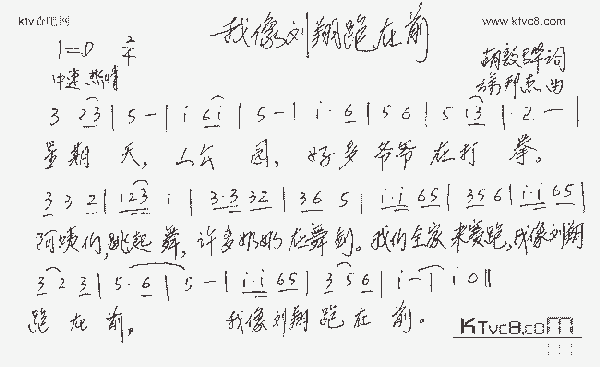 www.ktvc8.com
我像刘翔跑在前
1=D 2/4
中速 热情
胡敦骅词
邦杰曲
3 23 | 5 - | i 6i | 5 - | i · 6 | 5 6 | 5 i3 | 2 - - |
星期天，人公园，好多爷爷在打拳。
3 3 2 | 123 i | 3·3 32 | 36 5 | i·i 65 | 35 6 | i·i 65 |
阿姨们，跳起舞，许多奶奶在舞剑。我们全家来赛跑，我像刘翔
3 2 3 | 5·6 | 5 - | i·i 65 | 3 5 6 | i - | i 0 ||
跑在前，我像刘翔跑在前。
KTvc8.com